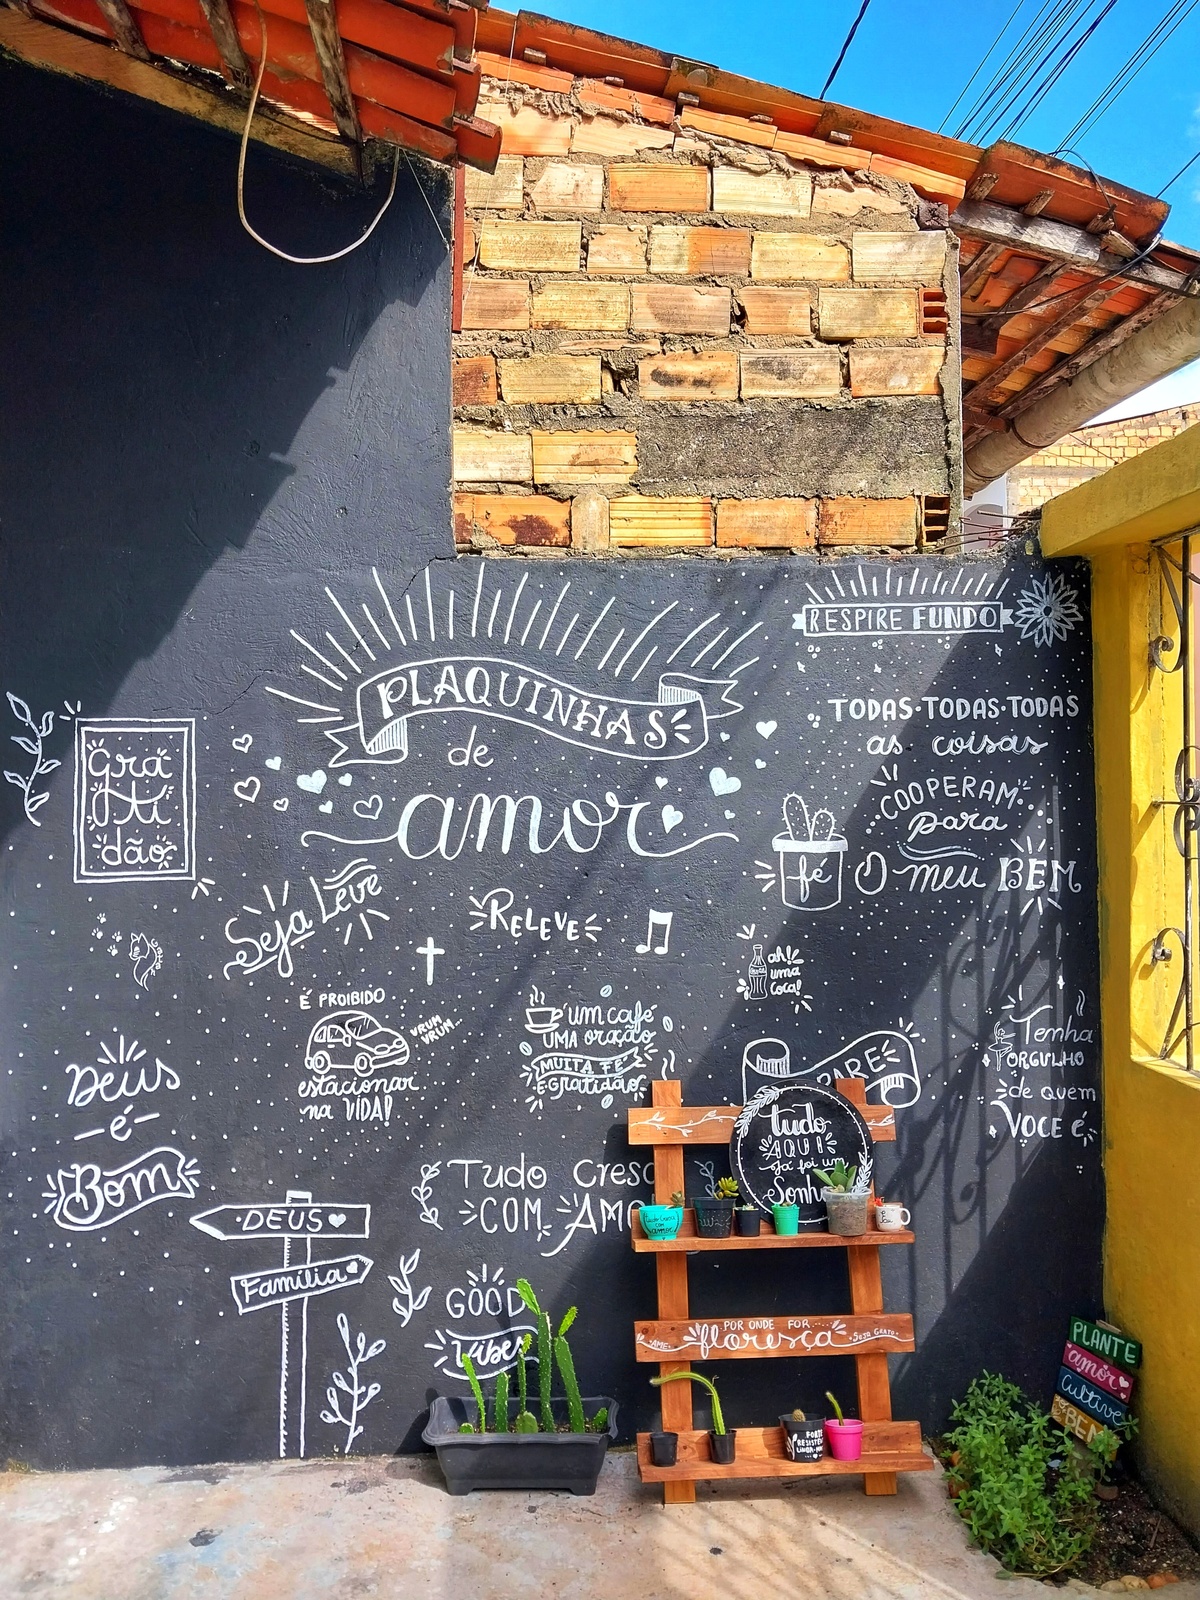 PLAQUINHAS
de
amor
RESPIRE FUNDO
TODAS·TODAS·TODAS
as coisas
COOPERAM
para
O meu BEM
fé
Gra
ti
dão
Seja Leve
RELEVE
ah!
uma
coca!
É PROIBIDO
VRUM
VRUM...
estacionar
na VIDA!
um café
UMA oração
MUITA FÉ
E gratidão
Tenha
ORGULHO
de quem
VOCÊ é
Deus
é
Bom
PARE
tudo
AQUI
Já foi um
Sonho
Tudo Cresc
COM AMO
DEUS
Família
GOOD
Vibes
POR ONDE FOR....
AME
floresça
SEJA GRATO
FORTE
PLANTE
amor
Cultive
BEM